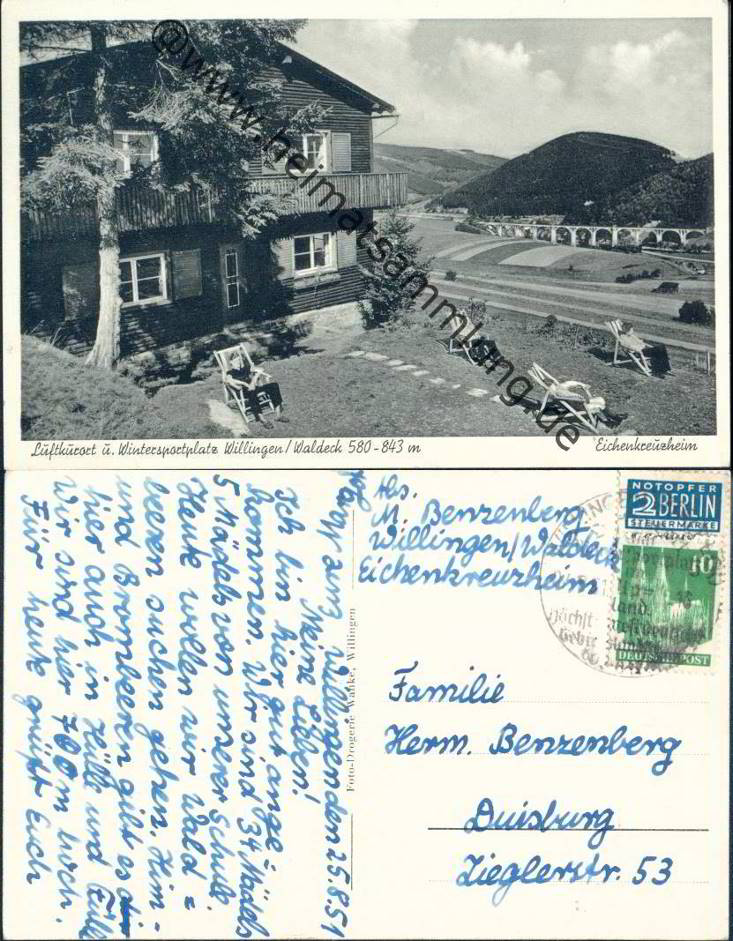 @www.heimatsammlung.de
Luftkurort u. Wintersportplatz Willingen/Waldeck 580-843 m
Eichenkreuzheim
Abs.
M. Benzenberg
Willingen/Waldeck
Eichenkreuzheim
NOTOPFER
2 BERLIN
STEUERMARKE
DEUTSCHE POST
Familie
Herm. Benzenberg
Duisburg
Zieglerstr. 53
Foto-Drogerie Wahle, Willingen
Willingen den 25.8.51
Meine Lieben!
Ich bin hier gut ange=
kommen. Wir sind 34 Mädels
5 Mädels von unserer Schule.
Heute wollen wir Wald=
beeren suchen gehen. Him-
und Brombeeren gibt es
hier auch in Hülle und Fülle
Wir sind hier 700 m hoch.
Für heute grüßt Euch